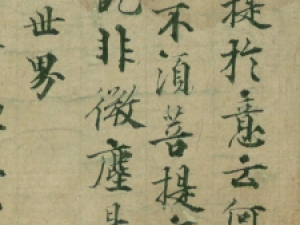 提於意云何
不須菩提
非微塵是
世界